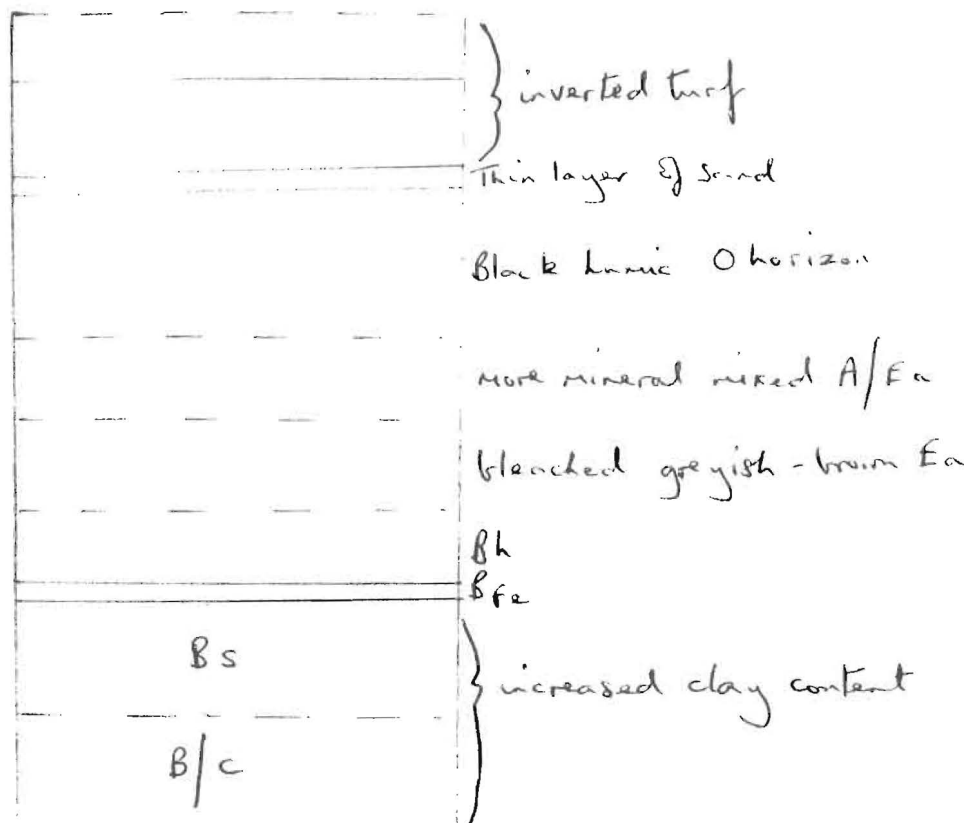 inverted turf
Thin layer of sand
Black humic O horizon
more mineral mixed A/Ea
bleached greyish-brown Ea
Bh
BFe
Bs
increased clay content
B/C